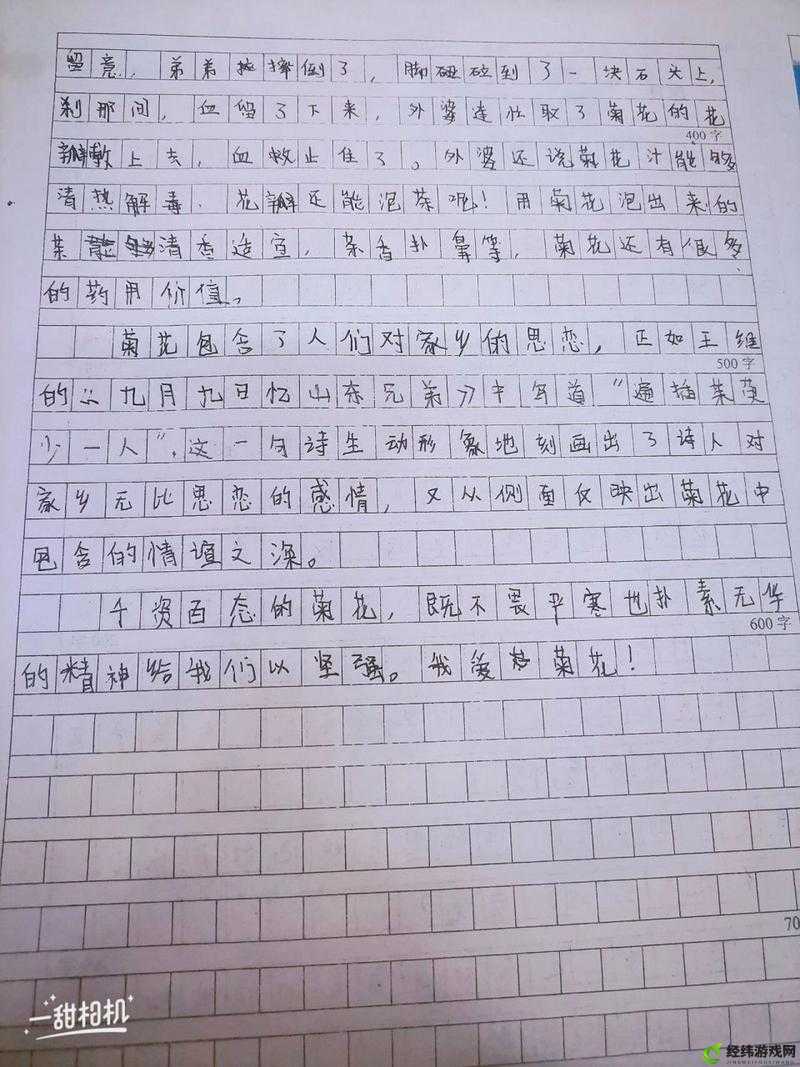 留意,弟弟摔倒了,脚碰到了一块石头上,
刹那间,血留了下来,外婆连忙取了菊花的花
400字
瓣敷上去,血救止住了。外婆还说菊花汁能够
清热解毒.花瓣还能泡茶呢!用菊花泡出来的
茶清香造宜,茶香扑鼻等,菊花还有很多
的药用价值。
菊花包含了人们对家乡的思恋,正如王维
500字
的《九月九日忆山东兄弟》中写道“遍插茱萸
少一人”.这一句诗生动形象地刻画出了诗人对
家乡无比思恋的感情,又从侧面仅映出菊花中
包含的情谊之深。
千资百态的菊花,既不畏严寒也扑素无华
600字
的精神给我们以坚强。我爱菊花!
70
一甜相机
经纬游戏网